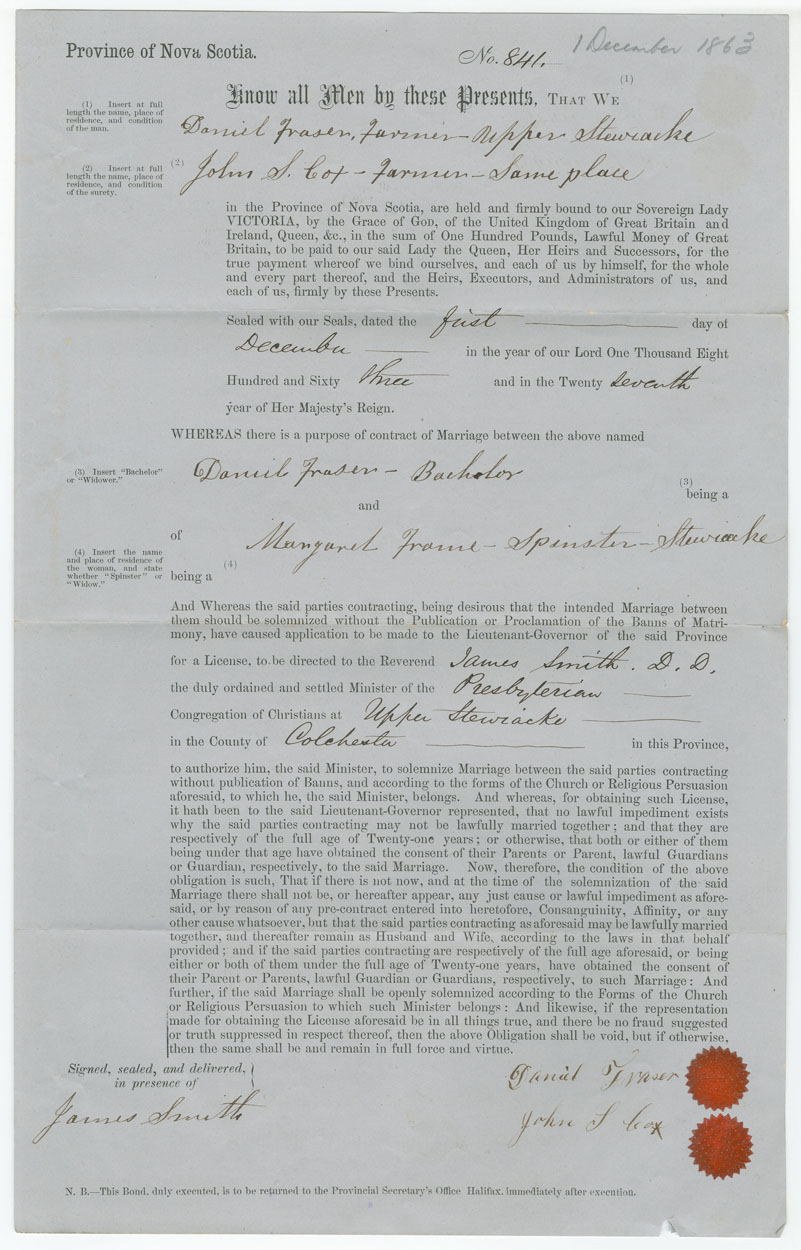 1 December 1863
Province of Nova Scotia.
No. 841.
(1)
Know all Men by these Presents, THAT WE
(1) Insert at full
length the name, place of
residence, and condition
of the man.
Daniel Fraser, Farmer – Upper Stewiacke
(2) Insert at full
length the name, place of
residence, and condition
of the surety.
(2)
John S. Cox – Farmer – Same place
in the Province of Nova Scotia, are held and firmly bound to our Sovereign Lady
VICTORIA, by the Grace of GOD, of the United Kingdom of Great Britain and
Ireland, Queen, &c., in the sum of One Hundred Pounds, Lawful Money of Great
Britain, to be paid to our said Lady the Queen, Her Heirs and Successors, for the
true payment whereof we bind ourselves, and each of us by himself, for the whole
and every part thereof, and the Heirs, Executors, and Administrators of us, and
each of us, firmly by these Presents.
Sealed with our Seals, dated the first day of
December in the year of our Lord One Thousand Eight
Hundred and Sixty three and in the Twenty seventh
year of Her Majesty's Reign.
WHEREAS there is a purpose of contract of Marriage between the above named
(3) Insert "Bachelor"
or "Widower."
Daniel Fraser – Bachelor
(3)
being a
and
of Margaret Frame – Spinster – Stewiacke
(4) Insert the name
and place of residence of
the woman, and state
whether "Spinster" or
"Widow."
(4)
being a
And Whereas the said parties contracting, being desirous that the intended Marriage between
them should be solemnized without the Publication or Proclamation of the Banns of Matri-
mony, have caused application to be made to the Lieutenant-Governor of the said Province
for a License, to be directed to the Reverend James Smith. D. D.
the duly ordained and settled Minister of the Presbyterian
Congregation of Christians at Upper Stewiacke
in the County of Colchester in this Province,
to authorize him, the said Minister, to solemnize Marriage between the said parties contracting
without publication of Banns, and according to the forms of the Church or Religious Persuasion
aforesaid, to which he, the said Minister, belongs. And whereas, for obtaining such License,
it hath been to the said Lieutenant-Governor represented, that no lawful impediment exists
why the said parties contracting may not be lawfully married together; and that they are
respectively of the full age of Twenty-one years; or otherwise, that both or either of them
being under that age have obtained the consent of their Parents or Parent, lawful Guardians
or Guardian, respectively, to the said Marriage. Now, therefore, the condition of the above
obligation is such, That if there is not now, and at the time of the solemnization of the said
Marriage there shall not be, or hereafter appear, any just cause or lawful impediment as afore-
said, or by reason of any pre-contract entered into heretofore, Consanguinity, Affinity, or any
other cause whatsoever, but that the said parties contracting as aforesaid may be lawfully married
together, and thereafter remain as Husband and Wife, according to the laws in that behalf
provided; and if the said parties contracting are respectively of the full age aforesaid, or being
either or both of them under the full age of Twenty-one years, have obtained the consent of
their Parent or Parents, lawful Guardian or Guardians, respectively, to such Marriage: And
further, if the said Marriage shall be openly solemnized according to the Forms of the Church
or Religious Persuasion to which such Minister belongs: And likewise, if the representation
made for obtaining the License aforesaid be in all things true, and there be no fraud suggested
or truth suppressed in respect thereof, then the above Obligation shall be void, but if otherwise,
then the same shall be and remain in full force and virtue.
Signed, sealed, and delivered,
in presence of
James Smith
Daniel Fraser
John S Cox
N. B.—This Bond, duly executed, is to be returned to the Provincial Secretary's Office Halifax, immediately after execution.